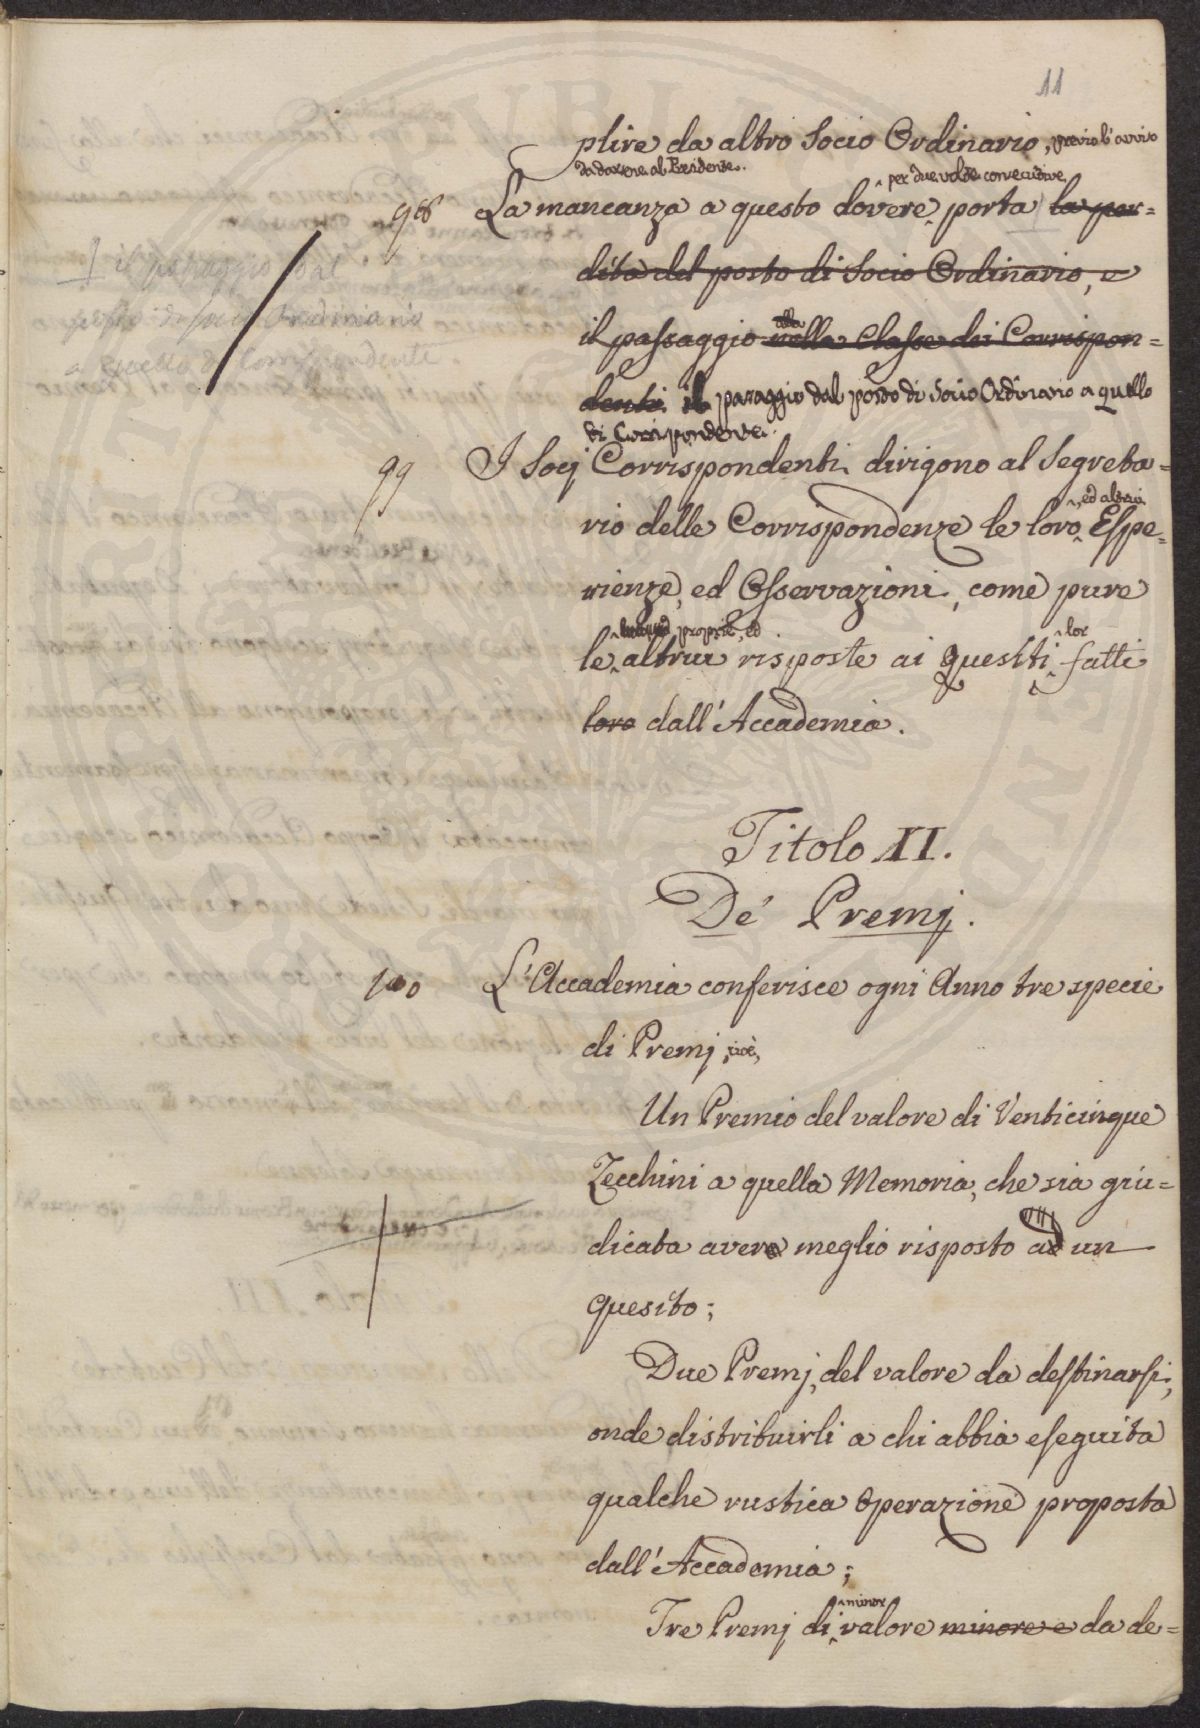 11
plire da altro Socio Ordinario, previo l'avviso
da darsene al Presidente.
per due volte consecutive
98 La mancanza a questo dovere porta la per=
dita del posto di Socio Ordinario, e
il passaggio nella Classe dei Corrispon=
alla
denti il passaggio dal posto di Socio Ordinario a quello
di Corrispondente.
il passaggio dal
posto di Socio Ordinario
a quello di Corrispondente
99 I Socj Corrispondenti dirigono al Segreta=
rio delle Corrispondenze le loro, ed altrui Espe=
rienze, ed Osservazioni, come pure
le proprie, ed altrui risposte ai Quesiti lor fatti
loro dall'Accademia.
Titolo XI.
De' Premj.
100 L'Accademia conferisce ogni Anno tre specie
di Premj, cioè,
Un Premio del valore di Venticinque
Zecchini a quella Memoria, che sia giu=
dicata avere meglio risposto ad un
Quesito;
Due Premj, del valore da destinarsi,
onde distribuirli a chi abbia eseguita
qualche rustica Operazione proposta
dall'Accademia;
Tre Premj di minor valore minore e da de=